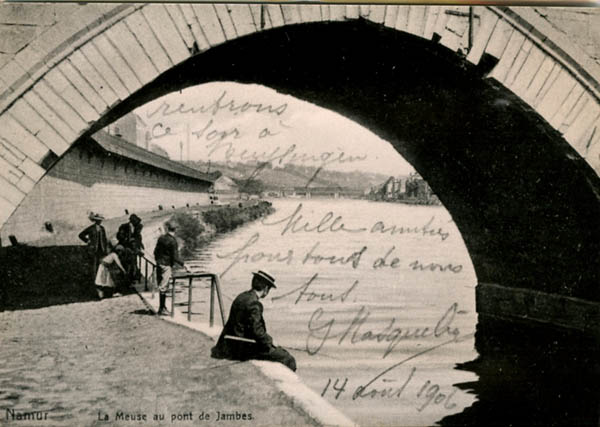 rentrons
ce soir à
Mille amitiés
pour tout de nous
tous.
14 août 1906
Namur
La Meuse au pont de Jambes.